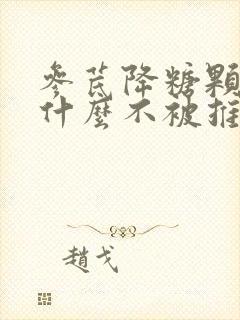 參芪降糖顆
什麼不被推
趙戈